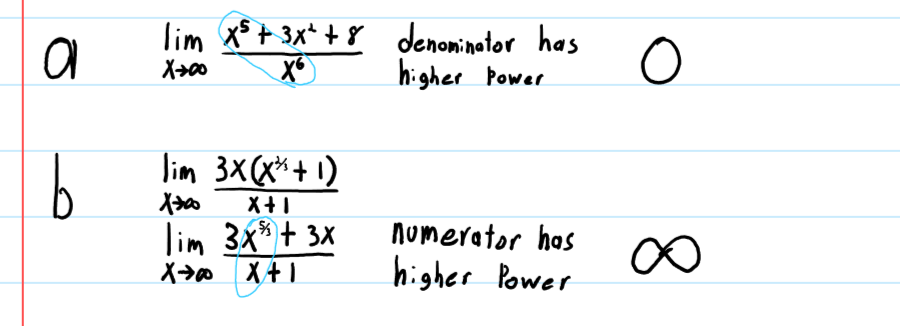 a lim x→∞ (x⁵ + 3x² + 8)/x⁶ denominator has higher power 0
b lim x→∞ 3x(x^(2/3) + 1)/(x+1)
lim x→∞ (3x^(5/3) + 3x)/(x+1) numerator has higher power ∞